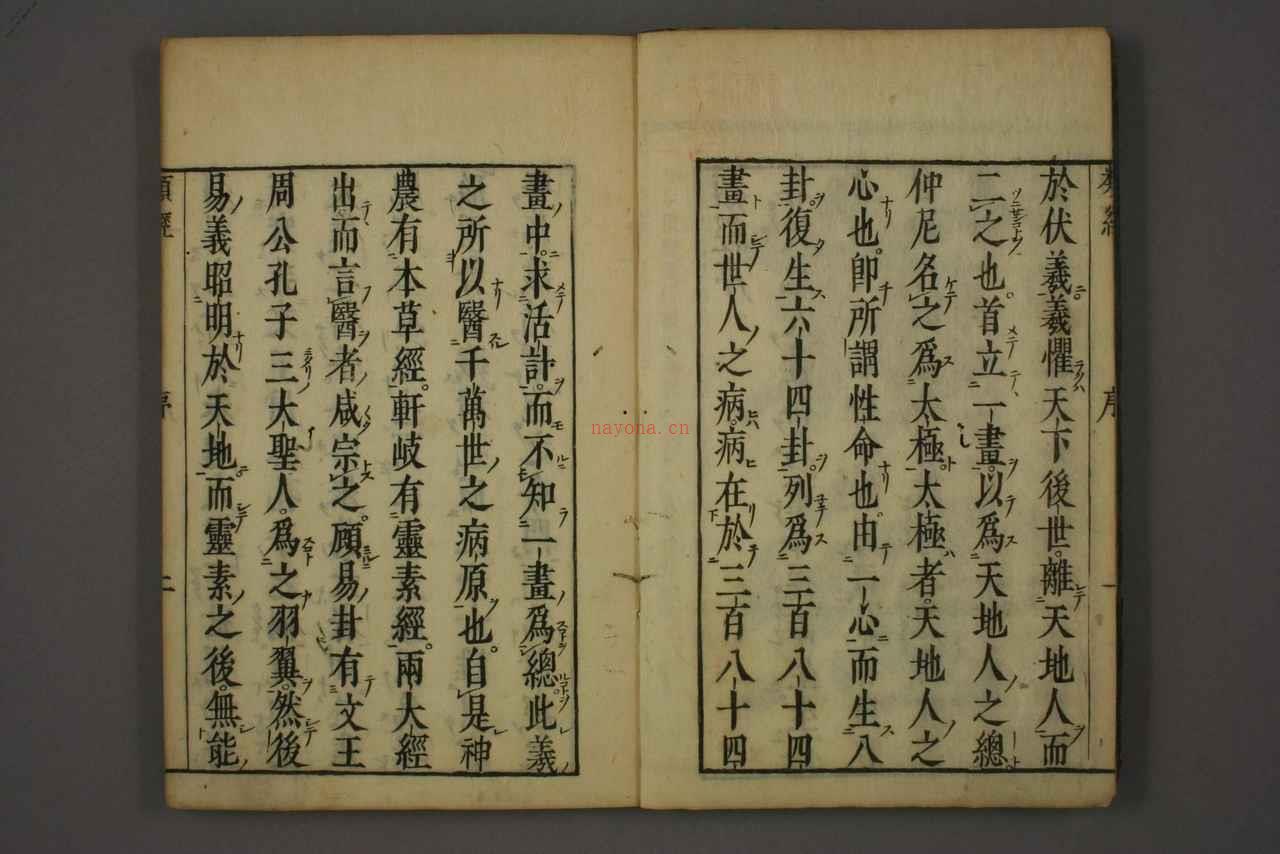 於伏羲羲懼天下後世離天地人而
二之也首立一畫以爲天地人之總
仲尼名之爲太極太極者天地人之
心也卽所謂性命也由一心而生八
卦復生六十四卦列爲三百八十四
畫而世人之病病在於三百八十四
畫中求活計而不知一畫爲總此義
之所以醫千萬世之病原也自是神
農有本草經軒岐有靈素經兩大經
出而言醫者咸宗之顧易卦有文王
周公孔子三大聖人爲之羽翼然後
易義昭明於天地而靈素之後無能
序
二
nayona.cn